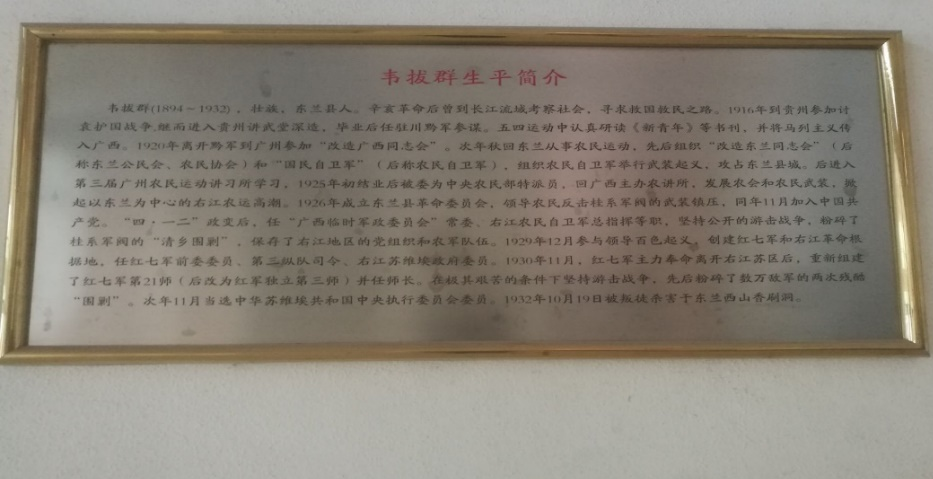 韦拔群生平简介
韦拔群(1894－1932)，壮族，东兰县人。辛亥革命后曾到长江流域考察社会，寻求救国救民之路。1916年到贵州参加讨
袁护国战争,继而进入贵州讲武堂深造，毕业后任驻川黔军参谋。五四运动中认真研读《新青年》等书刊，并将马列主义传
入广西。1920年离开黔军到广州参加“改造广西同志会”。次年秋回东兰从事农民运动，先后组织“改造东兰同志会”（后
称东兰公民会、农民协会）和“国民自卫军”（后称农民自卫军），组织农民自卫军举行武装起义，攻占东兰县城。后进入
第三届广州农民运动讲习所学习，1925年初结业后被委为中央农民部特派员，回广西主办农讲所，发展农会和农民武装，掀
起以东兰为中心的右江农运高潮。1926年成立东兰县革命委员会，领导农民反击桂系军阀的武装镇压，同年11月加入中国共
产党。“四·一二”政变后，任“广西临时军政委员会”常委、右江农民自卫军总指挥等职，坚持公开的游击战争，粉碎了
桂系军阀的“清乡围剿”，保存了右江地区的党组织和农军队伍。1929年12月参与领导百色起义，创建红七军和右江革命根
据地，任红七军前委委员、第三纵队司令、右江苏维埃政府委员。1930年11月，红七军主力奉命离开右江苏区后，重新组建
了红七军第21师（后改为红军独立第三师）并任师长。在极其艰苦的条件下坚持游击战争，先后粉碎了数万敌军的两次残酷
“围剿”。次年11月当选中华苏维埃共和国中央执行委员会委员。1932年10月19日被叛徒杀害于东兰西山香刷洞。